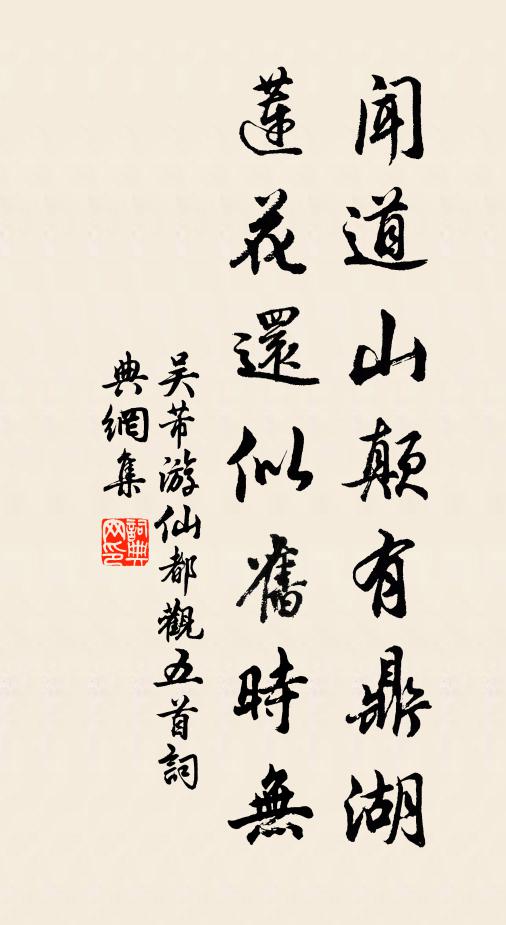 聞道山顛有鼎湖
蓮花還似舊時無
吳芾游仙都觀五首詞
典網集
詞典網印